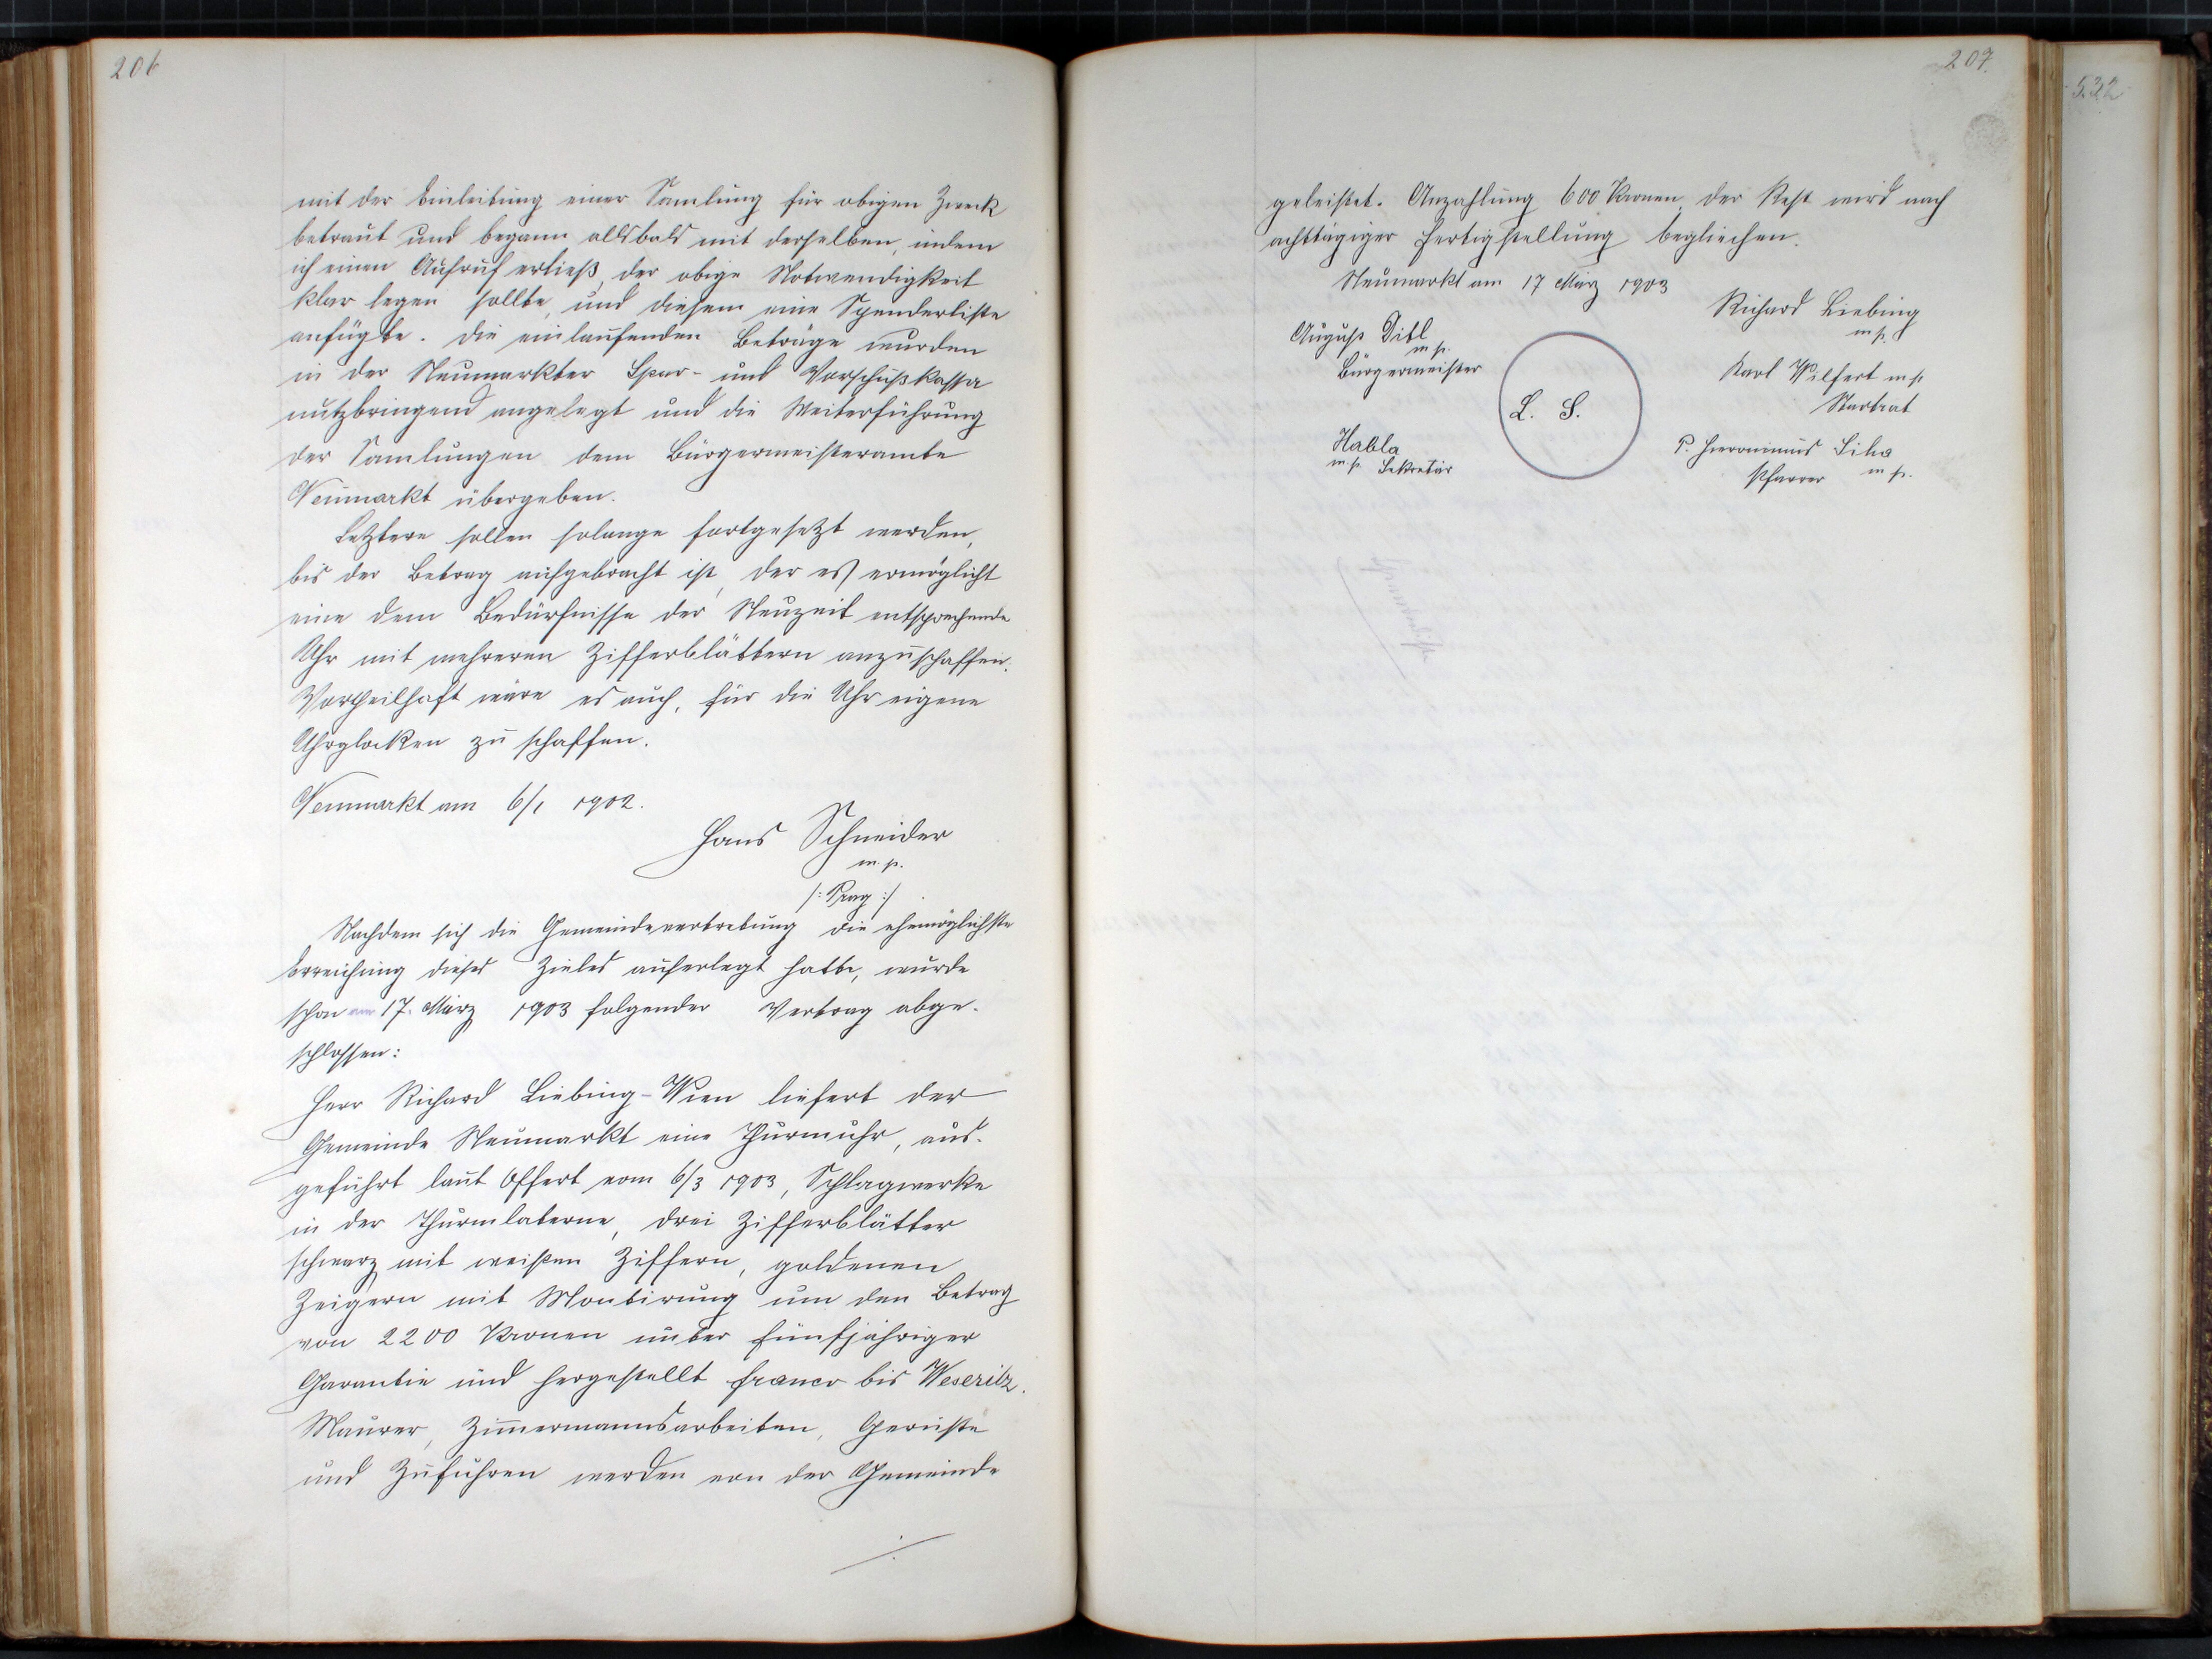 206
mit der Einleitung einer Samlung für obigen Zweck
betraut und begann allsbald mit derselben, indem
ich einen Aufruf erließ, der obige Notwendigkeit
klar legen sollte, und diesem eine Spenderliste
anfügte. Die einlaufenden Beträge wurden
in der Neumarkter Spar- und Vorschußkassa
nutzbringend angelegt und die Weiterführung
der Samlungen dem Bürgermeisteramte
Neumarkt übergeben.
Letztere sollen solange fortgesetzt werden,
bis der Betrag aufgebracht ist, der es ermöglicht
eine dem Bedürfnisse der Neuzeit entsprechende
Uhr mit mehreren Zifferblättern anzuschaffen.
Vortheilhaft wäre es auch, für die Uhr eigene
Uhrglocken zu schaffen.
Neumarkt am 6/1 1902.
Hans Schneider
m. p.
/: Prag :/
Nachdem sich die Gemeindevertretung die ehemöglichste
Erreichung dieses Zieles auferlegt hatte, wurde
schon am 17. März 1903 folgender Vertrag abge-
schlossen:
Herr Richard Liebing-Wien liefert der
Gemeinde Neumarkt eine Thurmuhr, aus-
geführt laut Offert vom 6/3 1903, Schlagwerke
in der Thurmlaterne, drei Zifferblätter
schwarz mit weißen Ziffern, goldenen
Zeigern mit Montirung um den Betrag
von 2200 Kronen unter fünfjähriger
Garantie und hergestellt franco bis Weseritz.
Maurer, Zimmermannsarbeiten, Gerüste
und Zufuhren werden von der Gemeinde
./.
207.
532
geleistet. Anzahlung 600 Kronen, der Rest wird nach
achttägiger Fertigstellung begliechen.
Neumarkt am 17 März 1903
Richard Liebing
m. p.
August Ditl
m p.
Bürgermeister
Karl Wilfert m p
Startrat
L. S.
Habla
m p. Sekretär
P. Hieronimus Siha
Pfarrer m p.